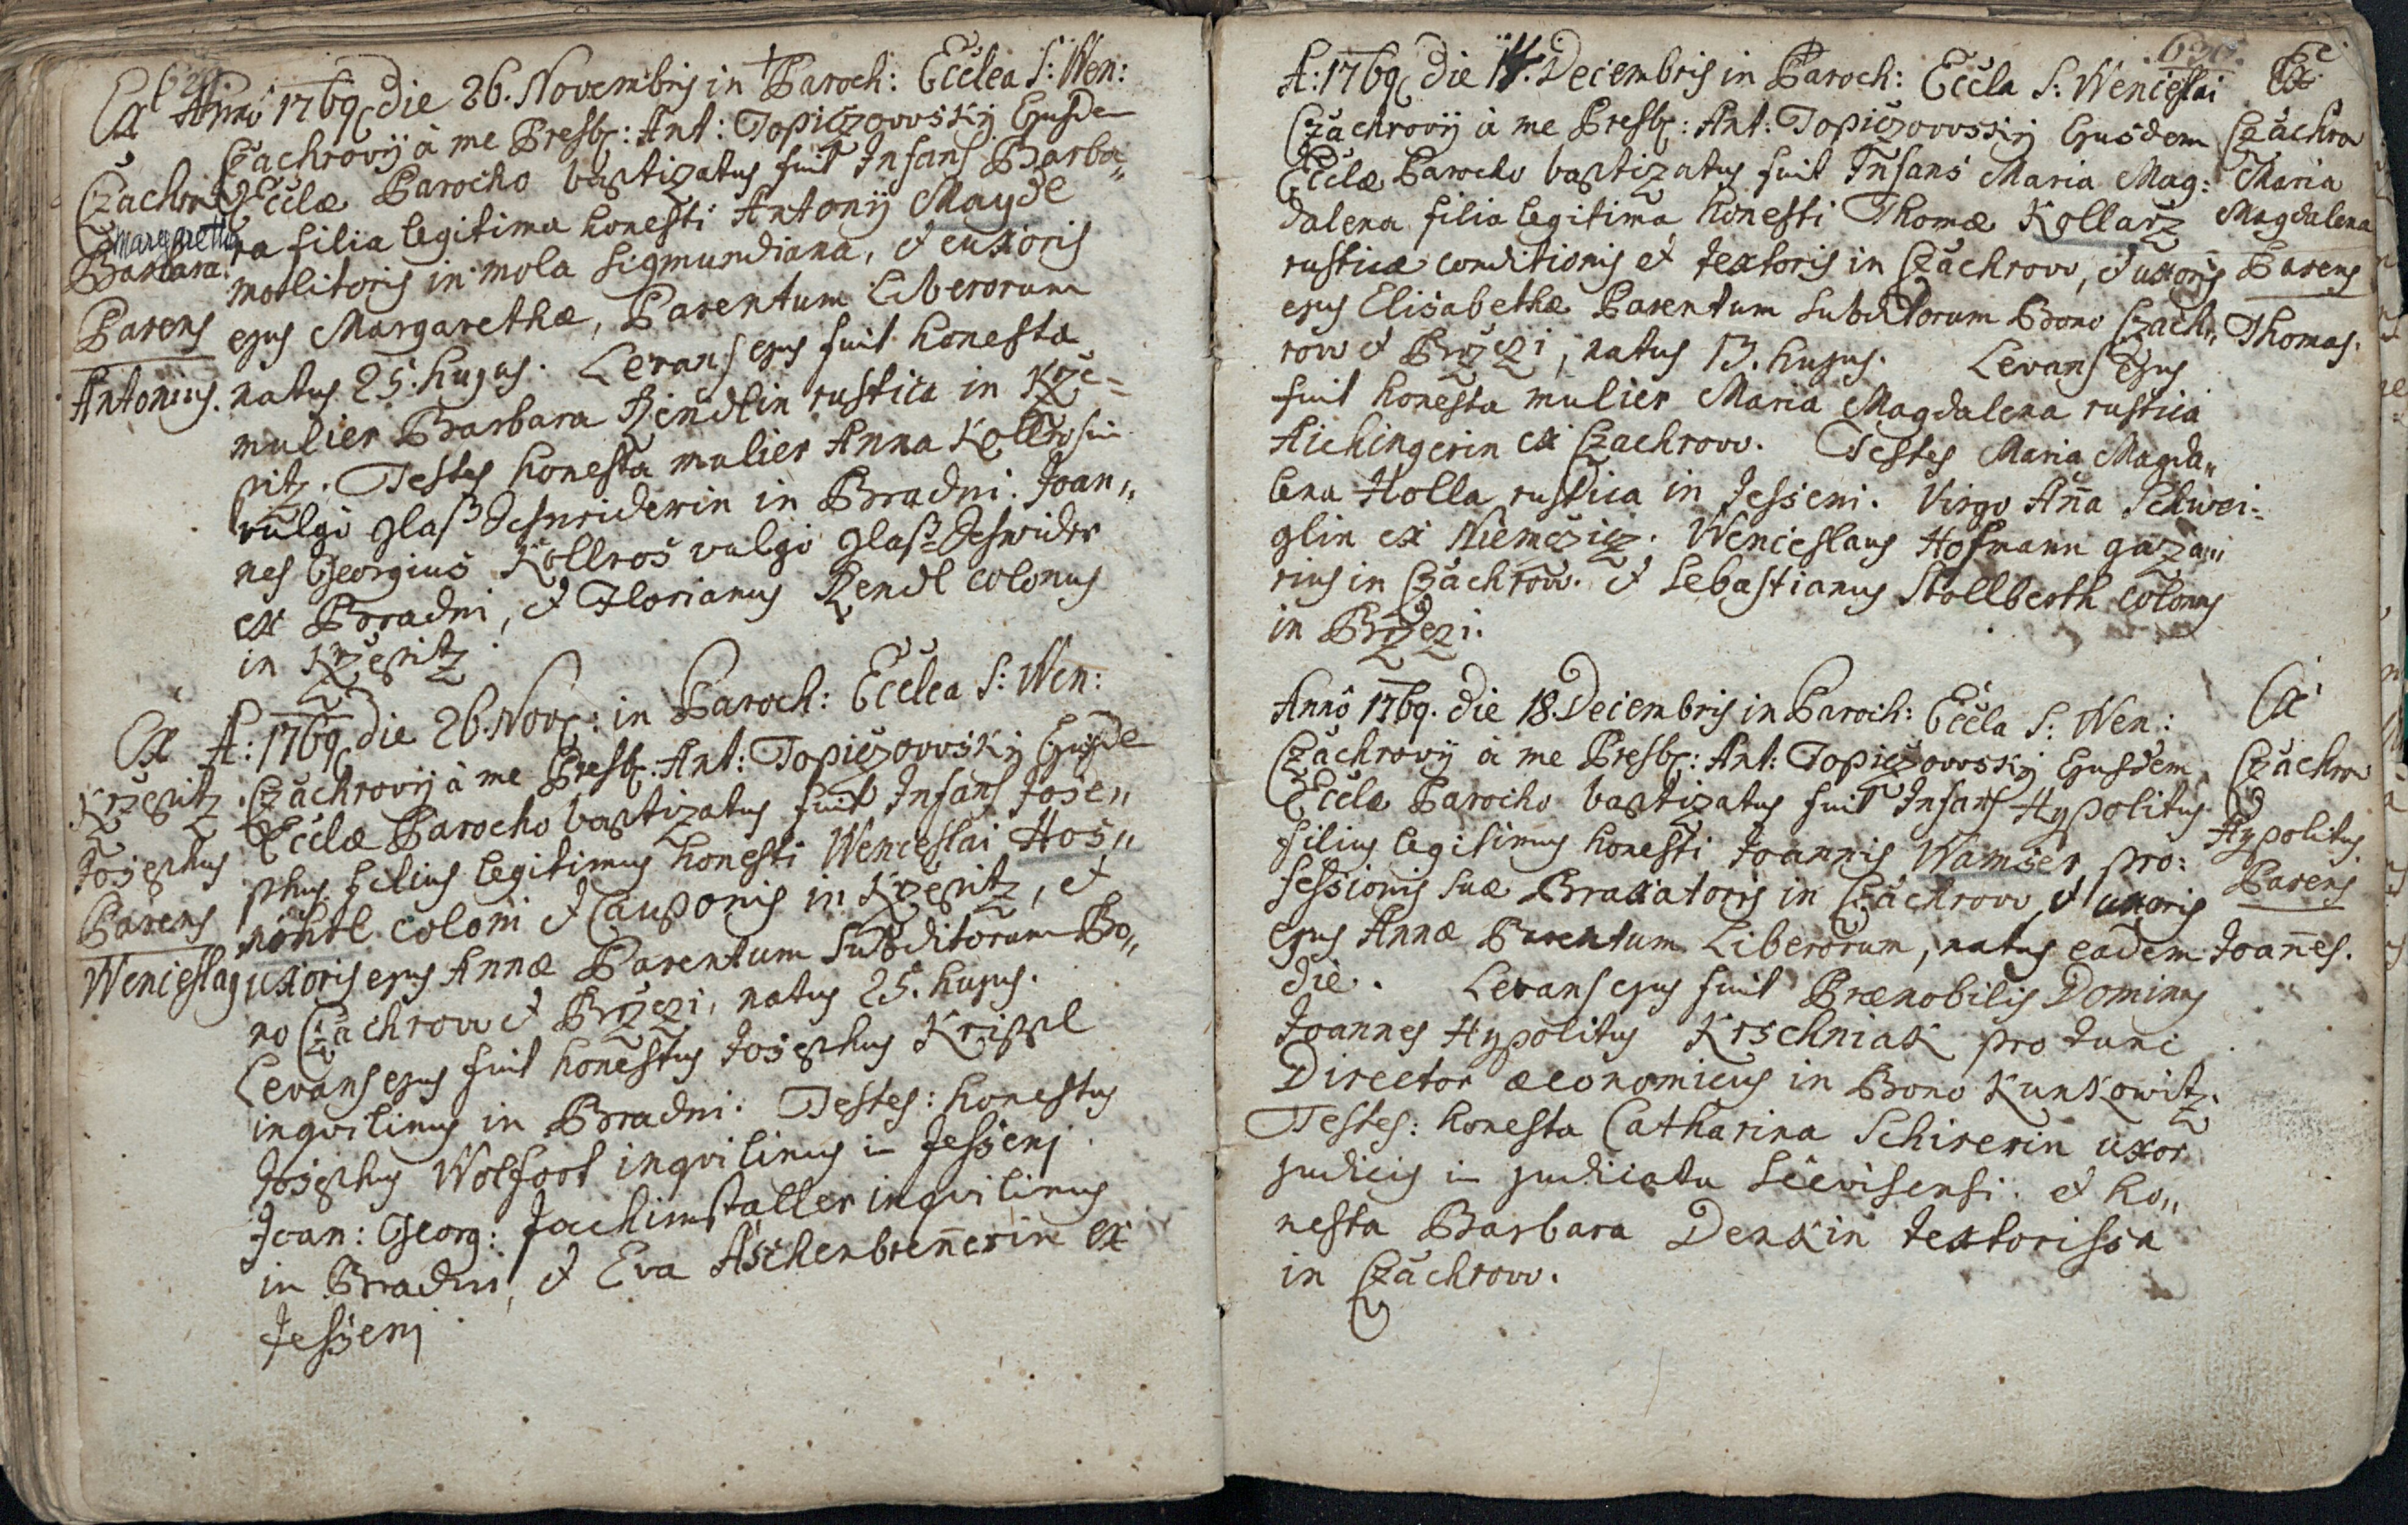 629
Ex
Czachrow
Margaretha
Barbara.
Parens
Antonius.
Anno 1769 die 26. Novembris in Paroch: Ecclea S: Wen:
Czachrovij à me Presb: Ant: Topiczovvský Ejusde
Ecclæ Parocho baptizatus fuit Infans Barba„
ra filia legitima honesti Antonij Maydl
molitoris in mola Sigmundiana, et euxoris
ejus Margarethæ, Parentum Liberorum
natus 25. hujus. Levans ejus fuit honesta
mulier Barbara Rendlin rustica in Krže=
pitz. Testes honesta mulier Anna Kollrosin
vulgo Glaß Schneiderin in Bradni. Joan„
nes Georgius Kollros vulgo Glaß=Schneider
ex Bradni, et Florianus Rendl colonus
in Kržepitz.
Ex
Kržepitz.
Josephus
Parens
Wenceslaus
A: 1769 die 26. Nov: in Paroch: Ecclea S: Wen:
Czachrovij à me Presb: Ant: Topiczovvský Ejusde
Ecclæ Parocho baptizatus fuit Infans Jose„
phus filius legitimus honesti Wenceslai Hos„
nöhtl coloni et Cauponis in Kržepitz, et
uxoris ejus Annæ Parentum Subditorum Bo„
no Czachrow et Bržezi, natus 25. hujus.
Levans ejus fuit honestus Josephus Krippl
inqvilinus in Bradni. Testes: honestus
Josephus Wolfort inqvilinus in Jesseni
Joan: Georg: Jochimstaller inqvilinus
in Bradni, et Eva Aschenbrennerin ex
Jesseni
630.
A: 1769 die 14. Decembris in Paroch: Eccla S: Wenceslai
Czachrovij à me Presb: Ant: Topiczovvský Ejusdem
Ecclæ Parocho baptizatus fuit Infans Maria Mag:
dalena filia legitima honesti Thomæ Kollarž
rusticæ conditionis et textoris in Czachrow, et uxoris
ejus Elisabethæ Parentum Subditorum Bono Czach„
row et Bržezi, natus 13. hujus. Levans ejus
fuit honesta mulier Maria Magdalena rustica
Aichingerin ex Czachrow. Testes Maria Magda„
lena Holla rustica in Jesseni. Virgo Ana Schwei=
glin ex Niemczicz. Wenceslaus Hofmann gaza„
rius in Czachrow. et Sebastianus Stollberth colonus
in Bržezi.
Ex
Czachrow
Maria
Magdalena
Parens
Thomas.
Anno 1769. die 18. Decembris in Paroch: Eccla S: Wen:
Czachrovij à me Presb: Ant: Topiczovvský Ejusdem
Ecclæ Parocho baptizatus fuit Infans Hypolitus
filius legitimus honesti Joannis Wamser, pro:
fessionis suæ Braxatoris in Czachrow, et uxoris
ejus Annæ Parentum Liberorum, natus eadem
die. Levans ejus fuit Prænobilis Dominus
Joannes Hypolitus Krschniak pro tunc
Director æconomicus in Bono Kunkowitz.
Testes: honesta Catharina Schirerin uxor
judicis in judicatu Seewisensi. et ho„
nesta Barbara Denkin textorissa
in Czachrow.
Ex
Czachrow
Hypolitus
Parens
Joanes.